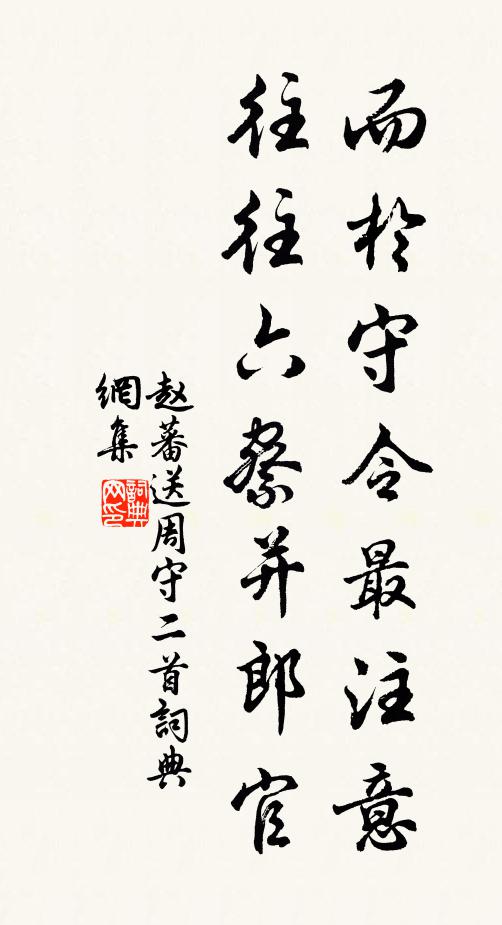 而於守令最注意
往往六察并郎官
赵蕃送周守二首詞典
網集
詞典网印